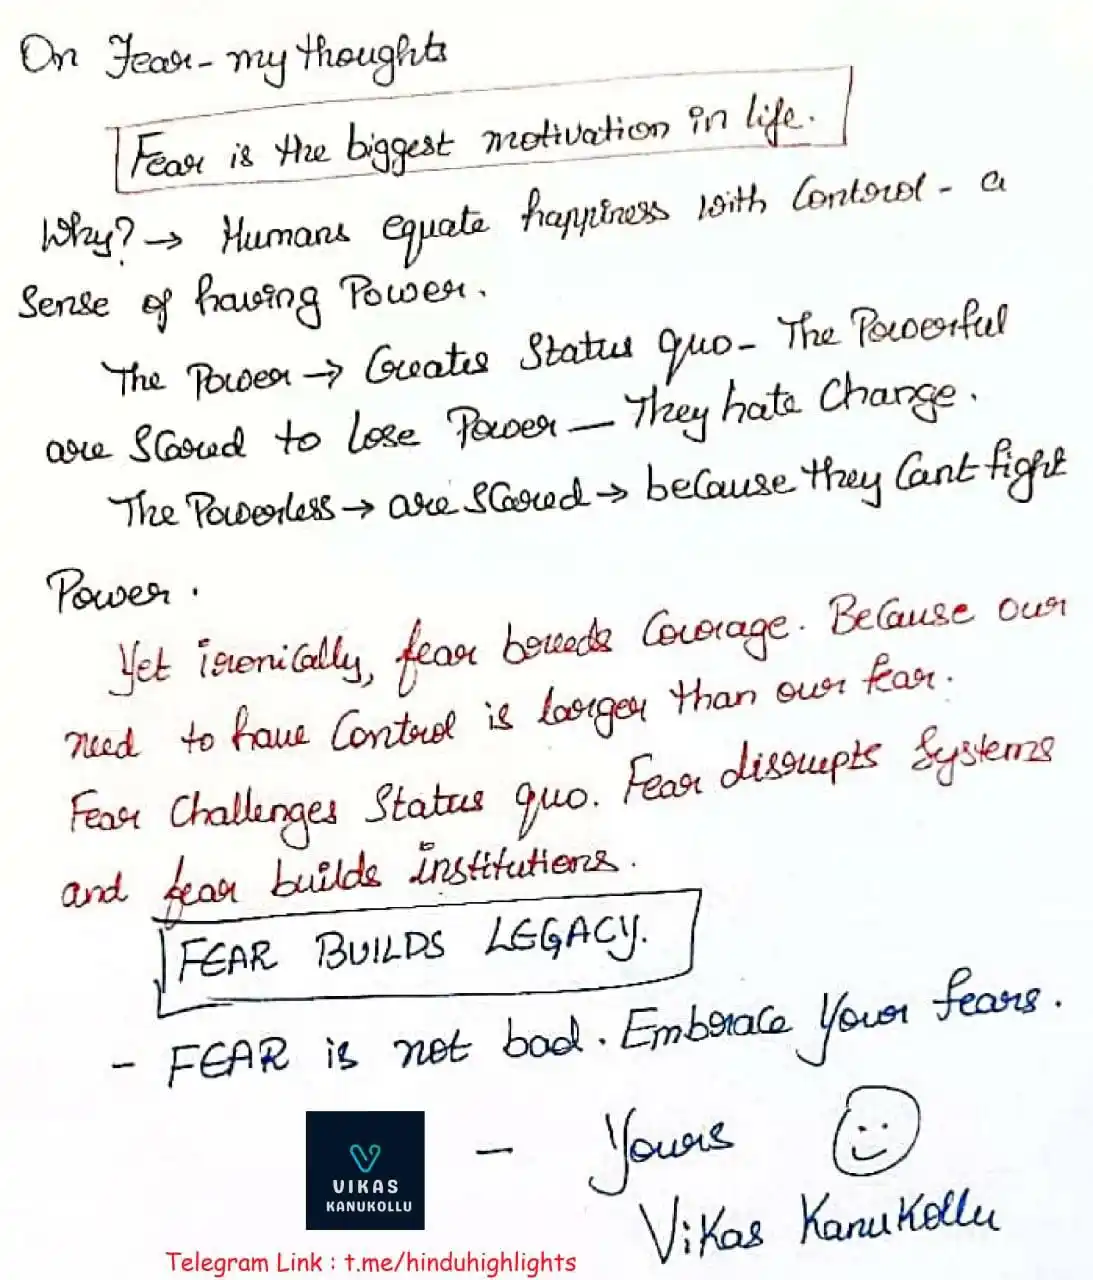 On Fear - my thoughts
Fear is the biggest motivation in life.
Why? → Humans equate happiness with Control - a
Sense of having Power.
The Power → Creates Status quo - The Powerful
are Scared to lose Power — They hate Change.
The Powerless → are Scared → because they Cant fight
Power.
Yet ironically, fear breeds Courage. Because our
need to have Control is larger than our fear.
Fear Challenges Status quo. Fear disrupts Systems
and fear builds institutions.
FEAR BUILDS LEGACY.
- FEAR is not bad. Embrace Your fears.
- Yours
Vikas Kanukollu
VIKAS
KANUKOLLU
Telegram Link : t.me/hinduhighlights